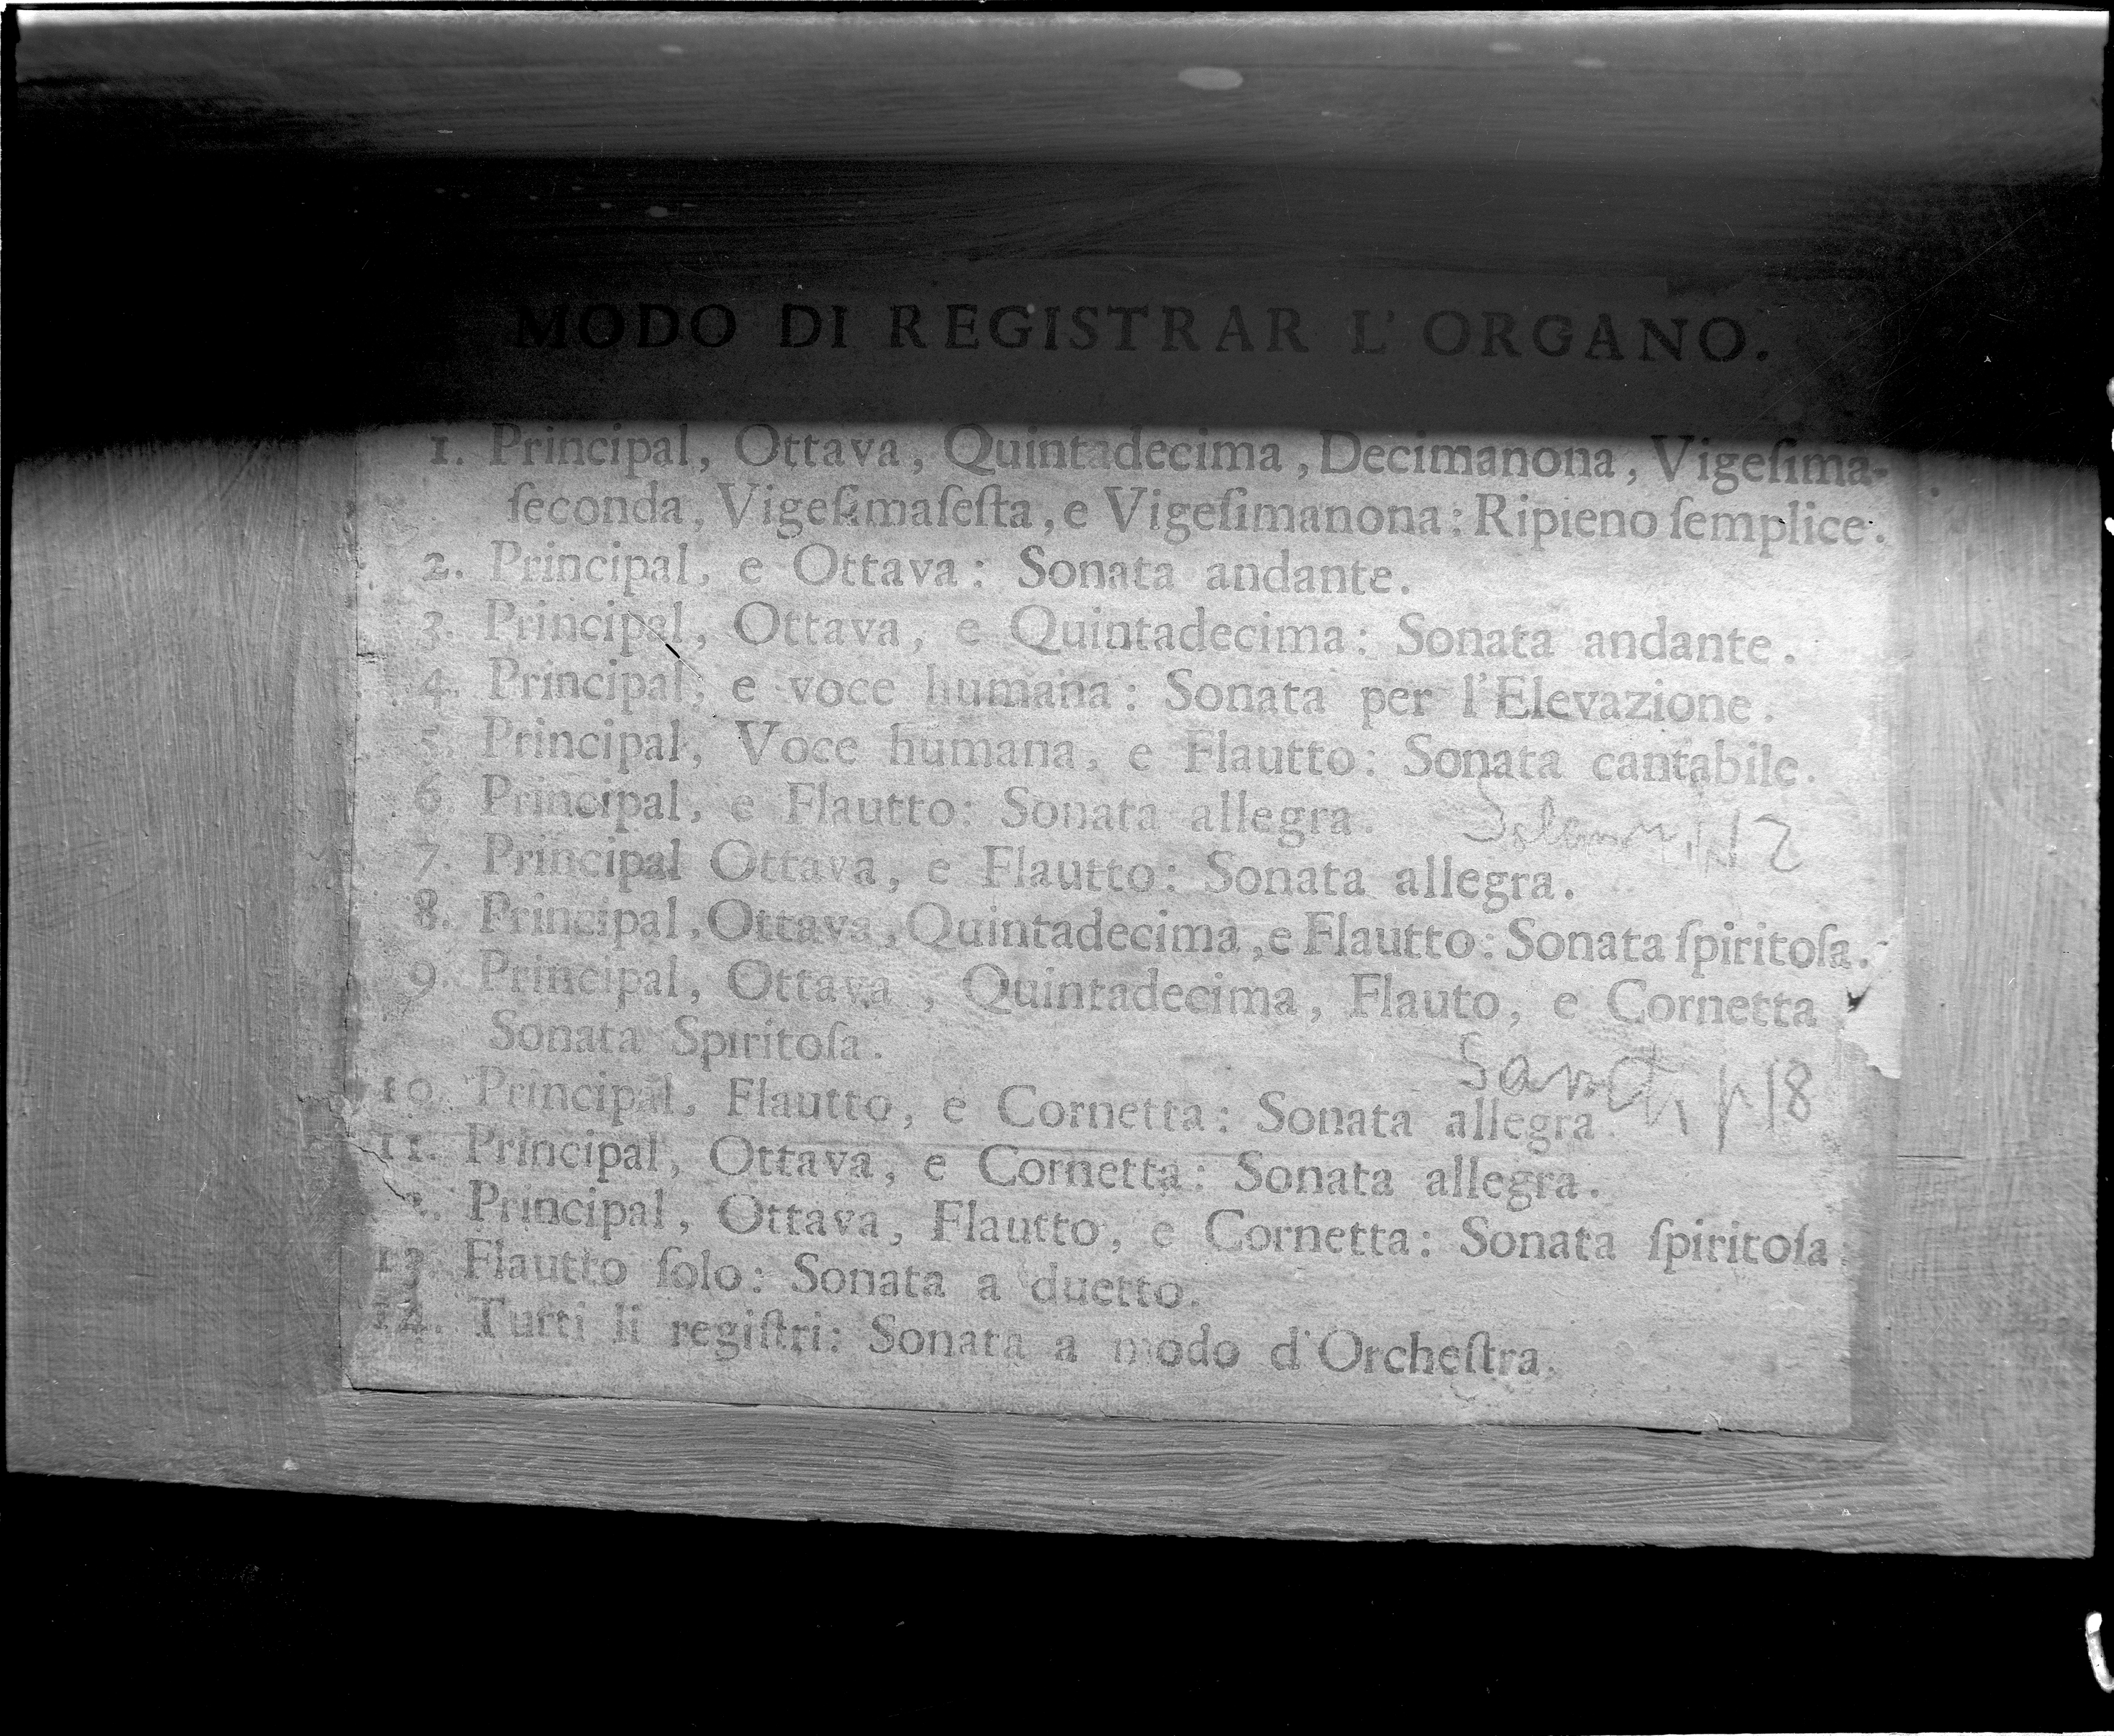 MODO DI REGISTRAR L'ORGANO.
1. Principal, Ottava, Quintadecima, Decimanona, Vigeſima-
ſeconda, Vigeſimaſeſta, e Vigeſimanona: Ripieno ſemplice.
2. Principal, e Ottava: Sonata andante.
3. Principal, Ottava, e Quintadecima: Sonata andante.
4. Principal, e voce humana: Sonata per l'Elevazione.
5. Principal, Voce humana, e Flautto: Sonata cantabile.
6. Principal, e Flautto: Sonata allegra.
7. Principal Ottava, e Flautto: Sonata allegra.
8. Principal, Ottava, Quintadecima, e Flautto: Sonata ſpiritoſa.
9. Principal, Ottava, Quintadecima, Flauto, e Cornetta
Sonata Spiritoſa.
10. Principal, Flautto, e Cornetta: Sonata allegra.
11. Principal, Ottava, e Cornetta: Sonata allegra.
2. Principal, Ottava, Flautto, e Cornetta: Sonata ſpiritoſa.
13. Flautto ſolo: Sonata a duetto.
14. Tutti li regiſtri: Sonata a modo d'Orcheſtra.